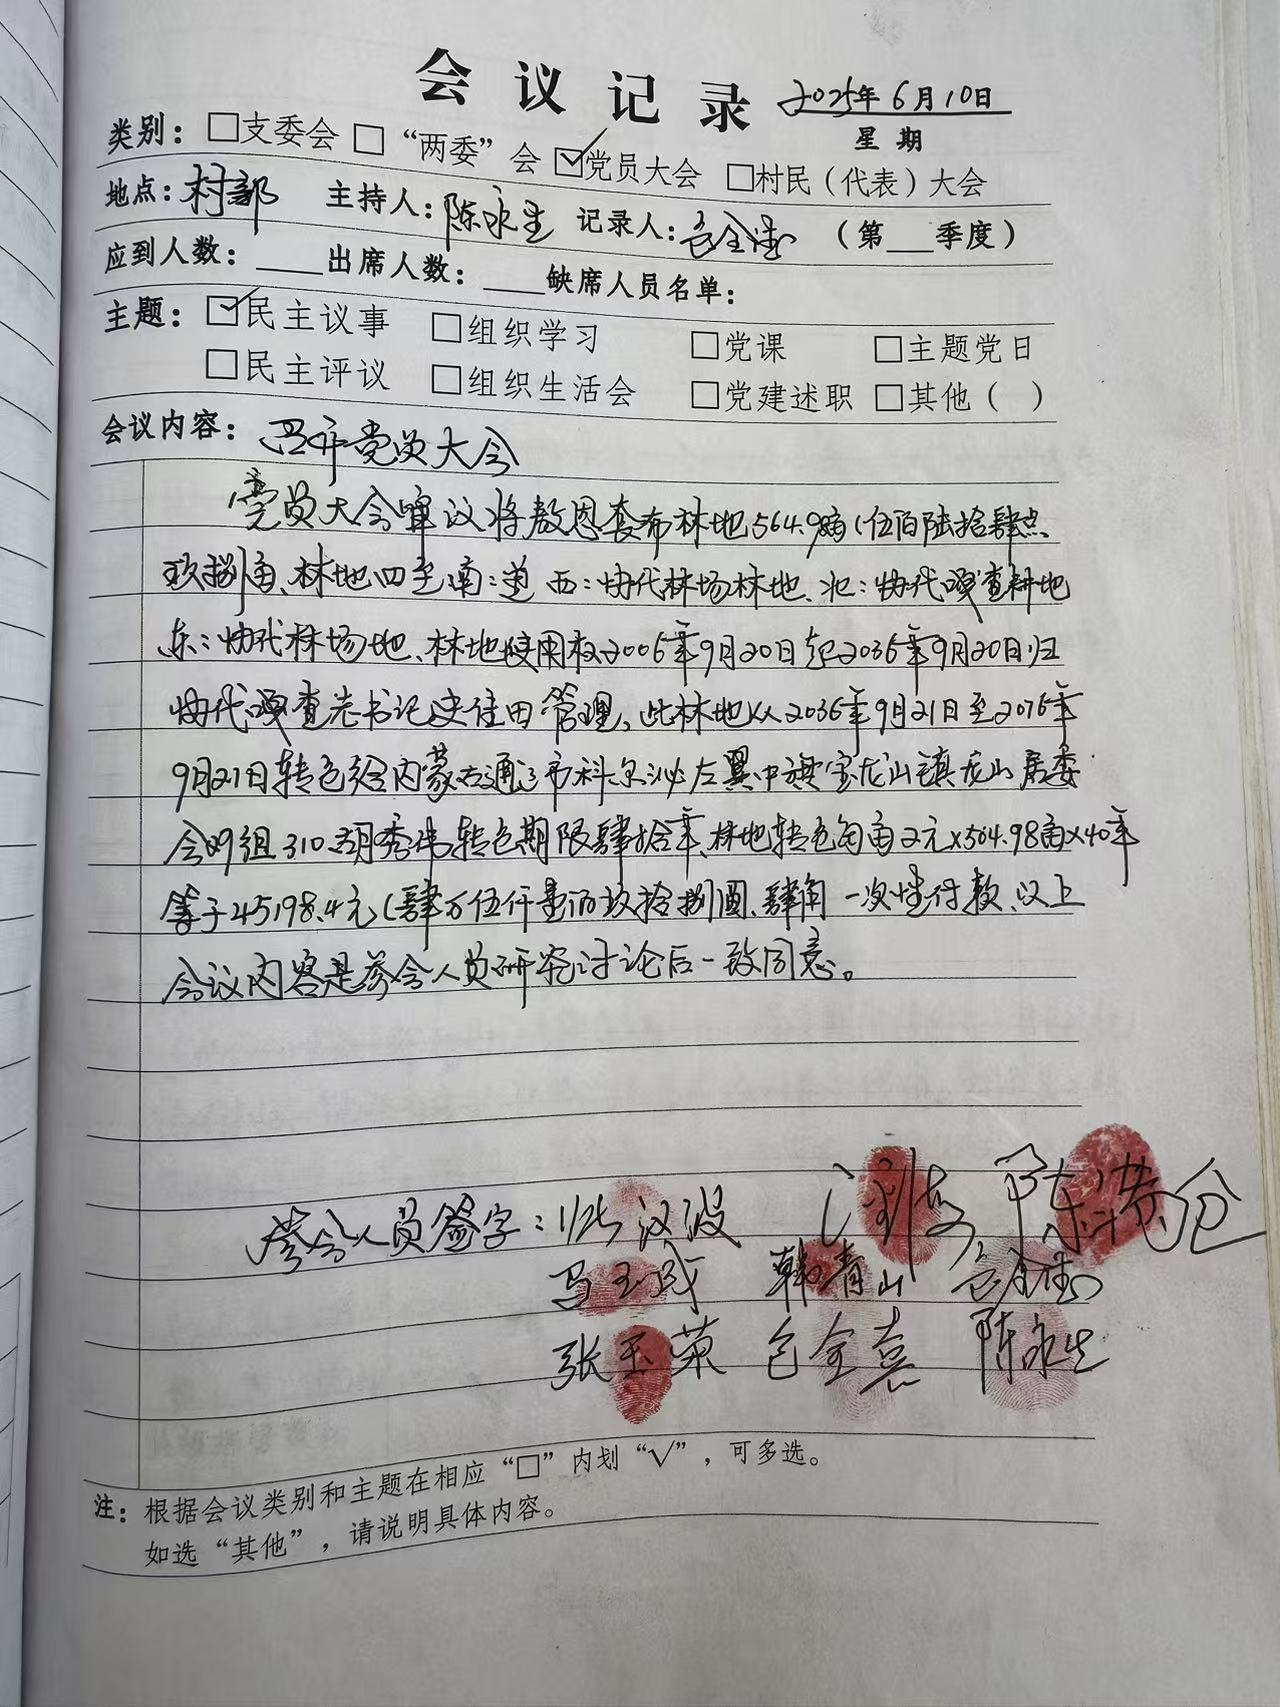 会议记录 2025年6月10日
星期
类别：□支委会 □“两委”会 ☑党员大会 □村民（代表）大会
地点：村部 主持人：陈永生 记录人：包全 （第___季度）
应到人数：____出席人数：____缺席人员名单：
主题：☑民主议事 □组织学习 □党课 □主题党日
□民主评议 □组织生活会 □党建述职 □其他（ ）
会议内容：召开党员大会
党员大会审议将敖恩套布林地564.98亩（伍佰陆拾肆点
玖捌亩、林地四至南：道 西：协代林场林地、北：协代嘎查耕地
东：协代林场地、林地使用权2006年9月20日起2036年9月20日归
协代嘎查老书记史佳田管理，此林地从2036年9月21日至2076年
9月21日转包给内蒙古通辽市科尔沁左翼中旗宝龙山镇龙山居委
会 组310 胡秀伟转包期限肆拾年、林地转包每亩2元×564.98亩×40年
等于45198.4元（肆万伍仟壹佰玖拾捌圆、肆角 一次性付款、以上
会议内容是参会人员研究讨论后一致同意。
参会人员签字： 汉波 陈 仓
马玉成 韩青山 包全
张玉荣 包全喜 陈永生
注：根据会议类别和主题在相应“□”内划“√”，可多选。
如选“其他”，请说明具体内容。